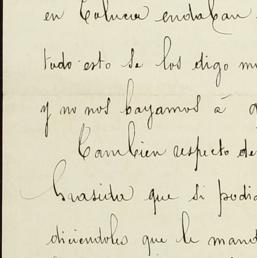 en Calucia endaban
todo esto se los digo
y no nos bayamos á
Cambien respecto de
Grasida que si podia
diciendoles que le mand